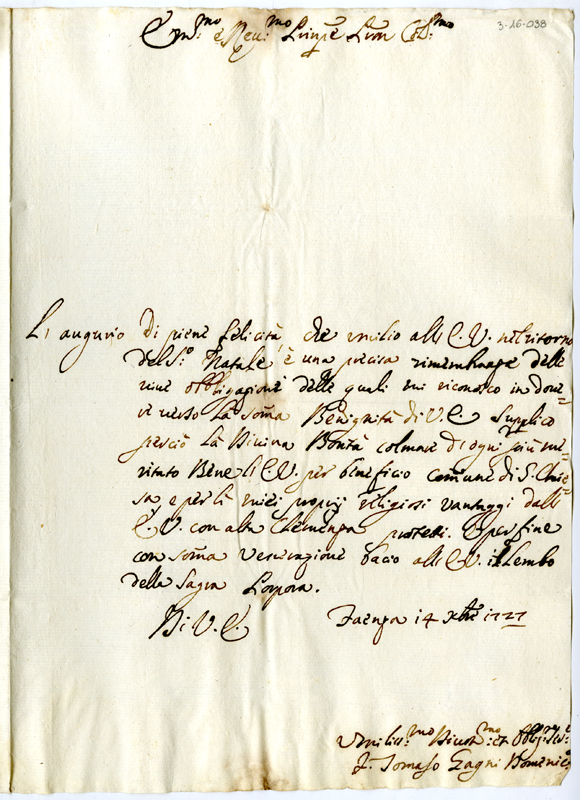 3-16-038
Em:mo e Rev:mo Prinpe Pron Col:mo
L'augurio di piene felicità, che umilio all'E.V. nel ritorno
del S.o Natale, è una precisa rimembranza delle
mie obbligazioni delle quali mi riconosco in dove=
re verso la soma Benignità di V.E. Supplico
perciò la Divina Bontà colmare di ogni più me=
ritato Bene l'E.V. per beneficio comune di S. Chie=
sa, e per li miei proprij religiosi vantaggi dall'
E.V. con alta Clemenza protetti. E per fine
con soma Venerazione bacio all'E.V. il Lembo
della Sagra Porpora.
Di V.E. Faenza 14 Xbre 1727
Umiliss:mo Divot:mo et Obblig:mo
F. Tomaso Zagni Domenic